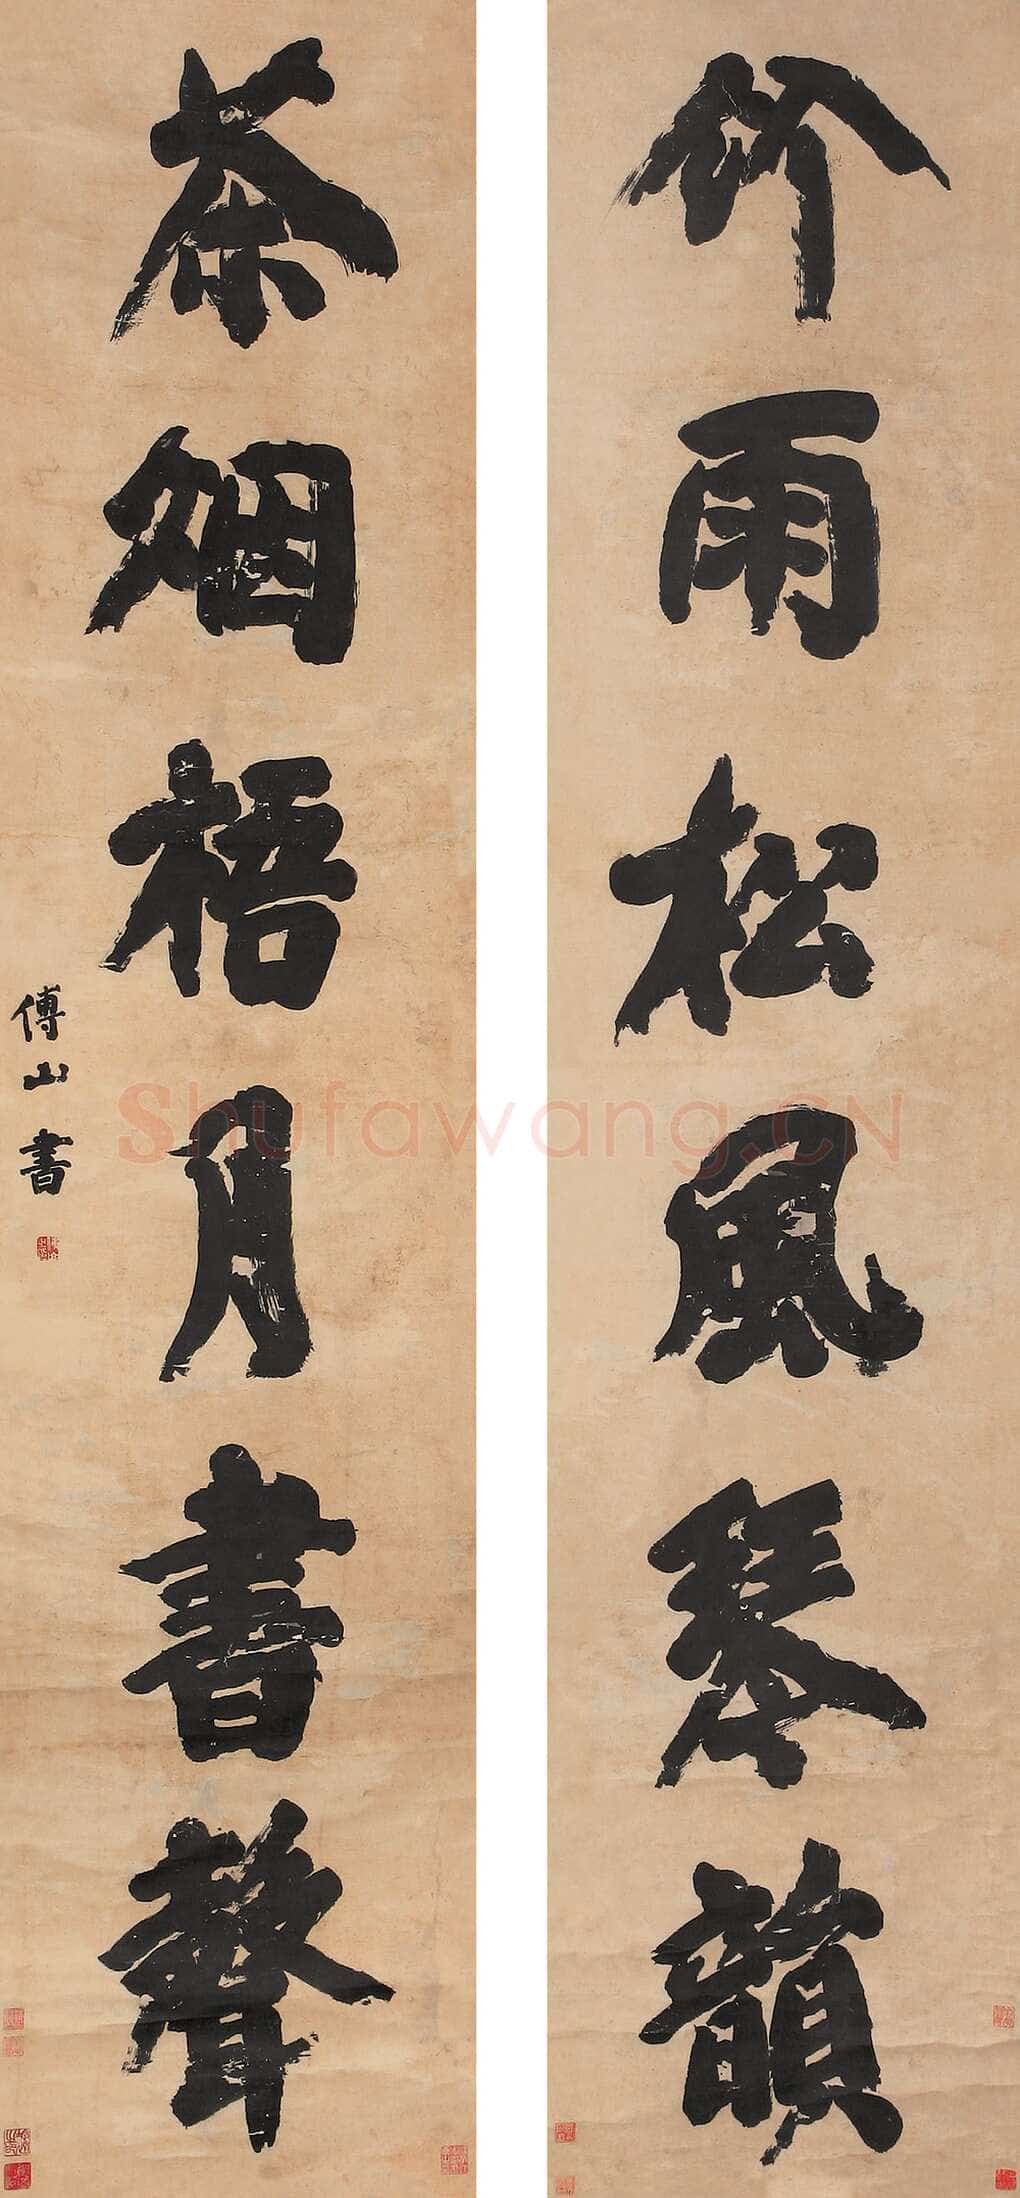 竹雨松風琴韻
茶烟梧月書聲
傅山書
Shufawang.CN